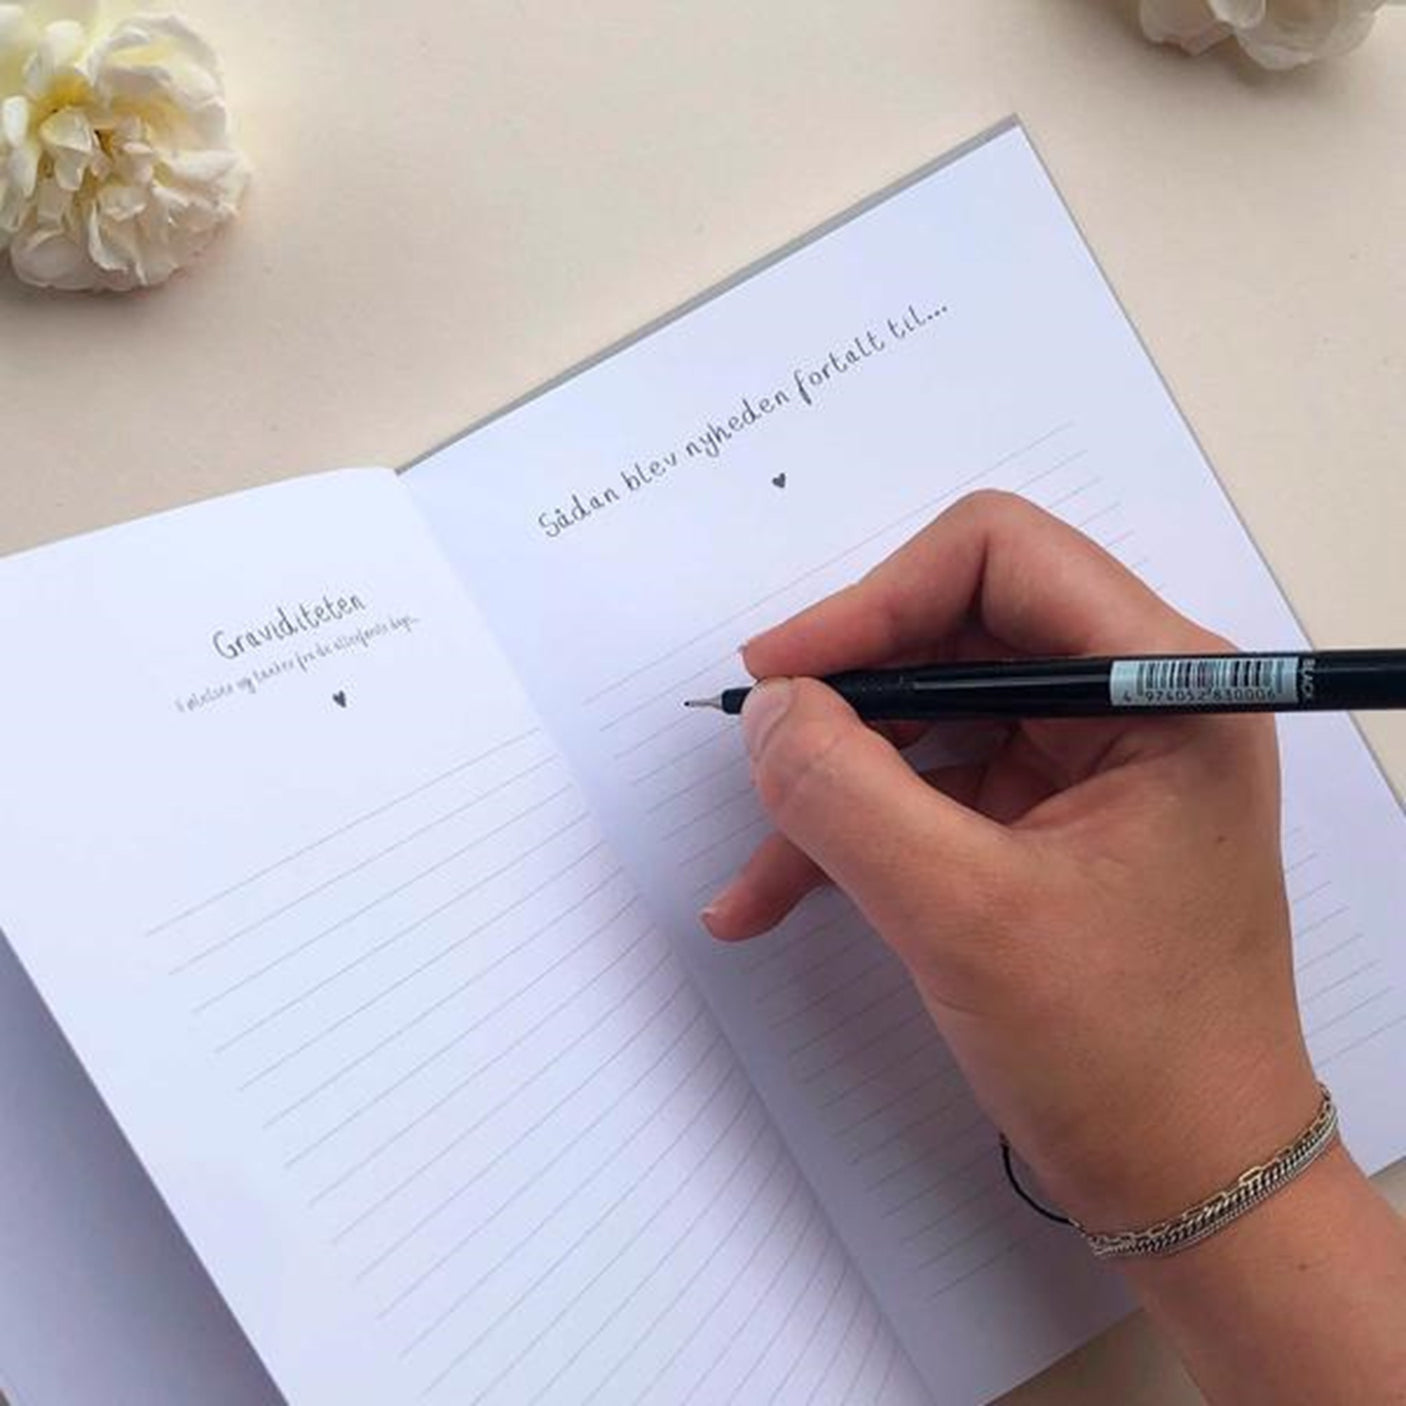 Graviditeten
Følelser og tanker fra de allerførste dage...
Sådan blev nyheden fortalt til...
4 974052 830006
BLACK